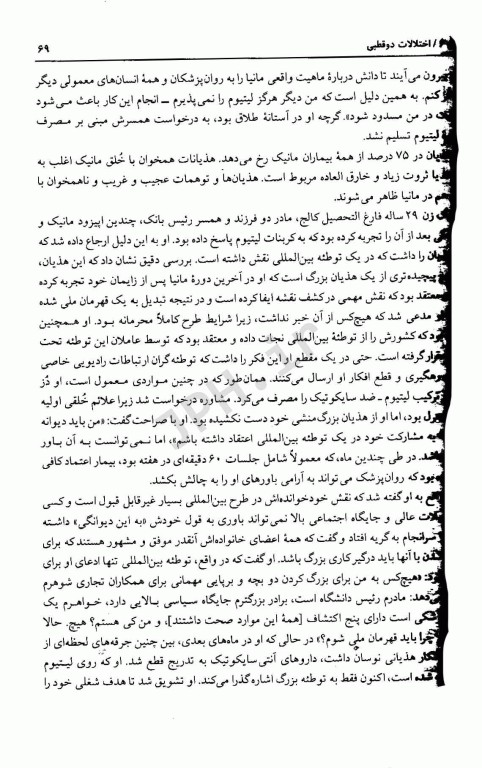 / اختلالات دوقطبی ۶۹
می‌آیند تا دانش دربارهٔ ماهیت واقعی مانیا را به روان‌پزشکان و همهٔ انسان‌های معمولی دیگر
کنم. به همین دلیل است که من دیگر هرگز لیتیوم را نمی‌پذیرم ــ انجام این کار باعث می‌شود
در من مسدود شود». گرچه او در آستانهٔ طلاق بود، به درخواست همسرش مبنی بر مصرف
لیتیوم تسلیم نشد.
در ۷۵ درصد از همهٔ بیماران مانیک رخ می‌دهد. هذیانات همخوان با خُلق مانیک اغلب به
یا ثروت زیاد و خارق العاده مربوط است. هذیان‌ها و توهمات عجیب و غریب و ناهمخوان با
در مانیا ظاهر می‌شوند.
زن ۲۹ ساله فارغ التحصیل کالج، مادر دو فرزند و همسر رئیس بانک، چندین اپیزود مانیک و
بعد از آن را تجربه کرده بود که به کربنات لیتیوم پاسخ داده بود. او به این دلیل ارجاع داده شد که
را داشت که در یک توطئه بین‌المللی نقش داشته است. بررسی دقیق نشان داد که این هذیان،
پیچیده‌تری از یک هذیان بزرگ است که او در آخرین دورهٔ مانیا پس از زایمان خود تجربه کرده
معتقد بود که نقش مهمی در کشف نقشه ایفا کرده است و در نتیجه تبدیل به یک قهرمان ملی شده
مدعی شد که هیچ‌کس از آن خبر نداشت، زیرا شرایط طرح کاملاً محرمانه بود. او همچنین
که کشورش را از توطئهٔ بین‌المللی نجات داده و معتقد بود که توسط عاملان این توطئه تحت
قرار گرفته است. حتی در یک مقطع او این فکر را داشت که توطئه‌گران ارتباطات رادیویی خاصی
رهگیری و قطع افکار او ارسال می‌کنند. همان‌طور که در چنین مواردی معمول است، او دُز
ترکیب لیتیوم - ضد سایکوتیک را مصرف می‌کرد. مشاوره درخواست شد زیرا علائم خُلقی اولیه
بود، اما او از هذیان بزرگ‌منشی خود دست نکشیده بود. او با صراحت گفت: «من باید دیوانه
به مشارکت خود در یک توطئه بین‌المللی اعتقاد داشته باشم»، اما نمی‌توانست به آن باور
در طی چندین ماه، که معمولاً شامل جلسات ۶۰ دقیقه‌ای در هفته بود، بیمار اعتماد کافی
بود که روان‌پزشک می‌تواند به آرامی باورهای او را به چالش بکشد.
به او گفته شد که نقش خودخوانده‌اش در طرح بین‌المللی بسیار غیرقابل قبول است و کسی
عالی و جایگاه اجتماعی بالا نمی‌تواند باوری به قول خودش «به این دیوانگی» داشته
سرانجام به گریه افتاد و گفت که همهٔ اعضای خانواده‌اش آنقدر موفق و مشهور هستند که برای
با آنها باید درگیر کاری بزرگ باشد. او گفت که در واقع، توطئه بین‌المللی تنها ادعای او برای
هیچ‌کس به من برای بزرگ کردن دو بچه و برپایی مهمانی برای همکاران تجاری شوهرم
مادرم رئیس دانشگاه است، برادر بزرگترم جایگاه سیاسی بالایی دارد، خواهرم یک
است دارای پنج اکتشاف [همهٔ این موارد صحت داشتند]، و من کی هستم؟ هیچ. حالا
چرا باید قهرمان ملی شوم؟» در حالی که او در ماه‌های بعدی، بین چنین جرقه‌های لحظه‌ای از
هذیانی نوسان داشت، داروهای آنتی‌سایکوتیک به تدریج قطع شد. او که روی لیتیوم
شده است، اکنون فقط به توطئه بزرگ اشاره گذرا می‌کند. او تشویق شد تا هدف شغلی خود را